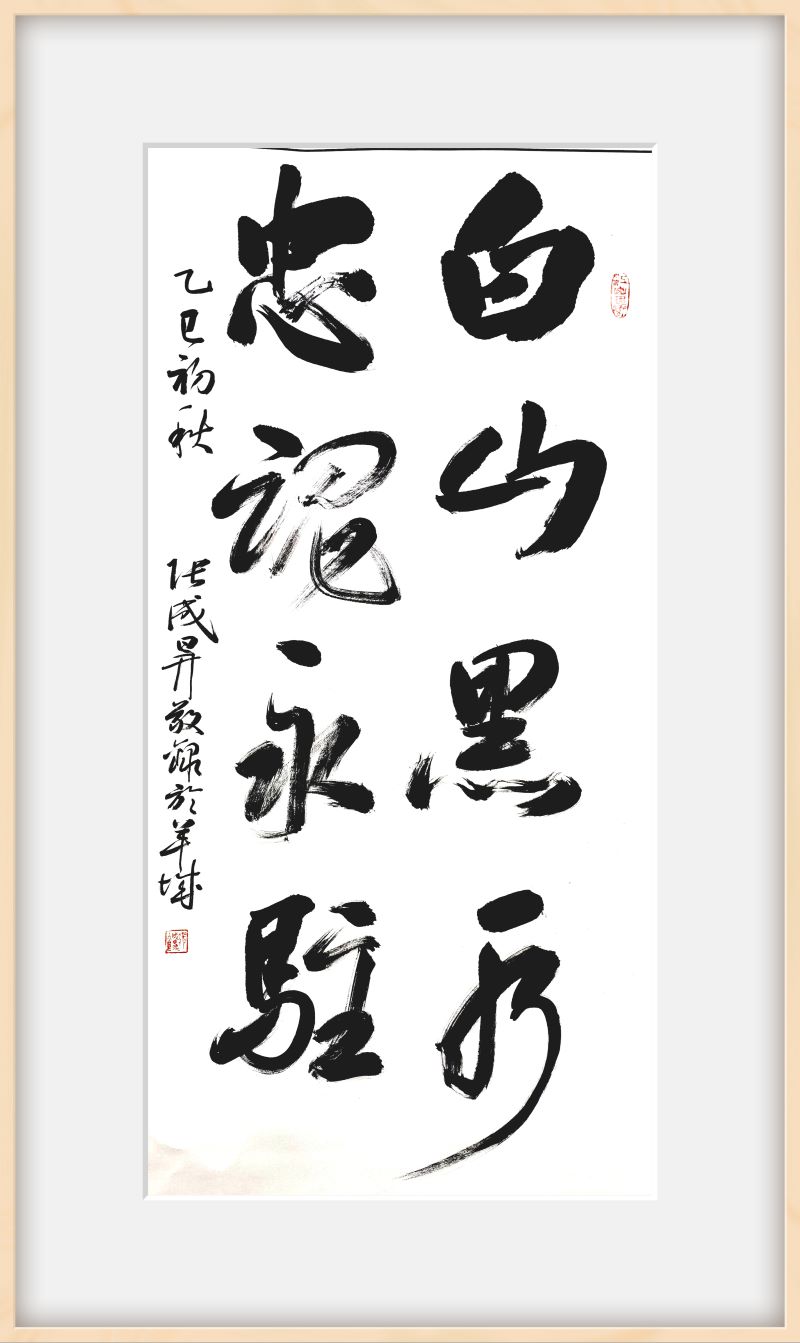 白山黑水
忠魂永駐
乙巳初秋 张成昇敬録於羊城